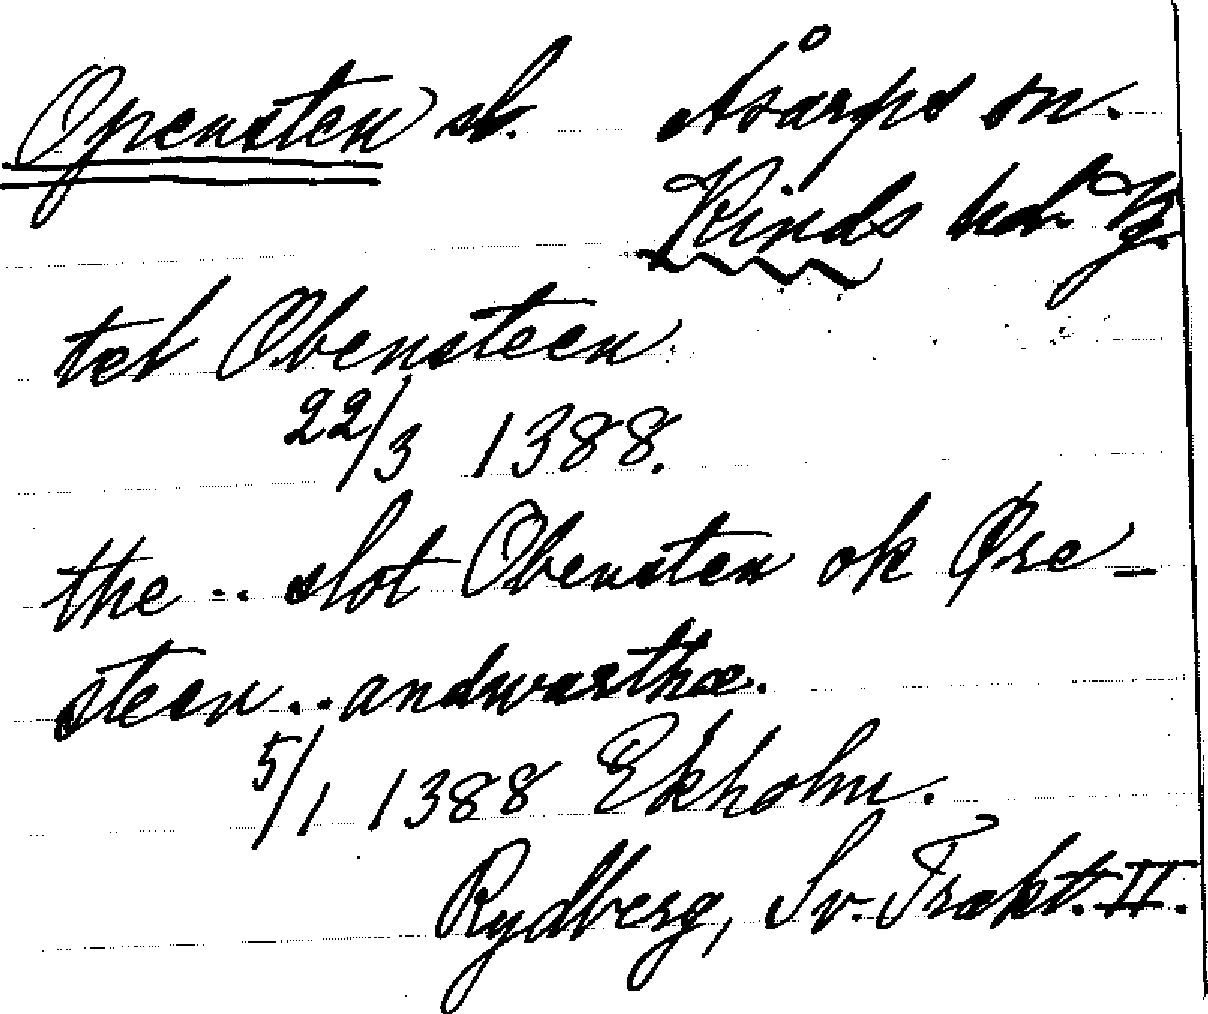 Opensten sl. Åsarps sn.
Kinds hd. Vg.
tel Obensteen
22/3 1388.
the .. slot Obensten ok Øre-
steen .. andwarthæ.
5/1 1388 Ekholm.
Rydberg, Sv. Trakt. II.